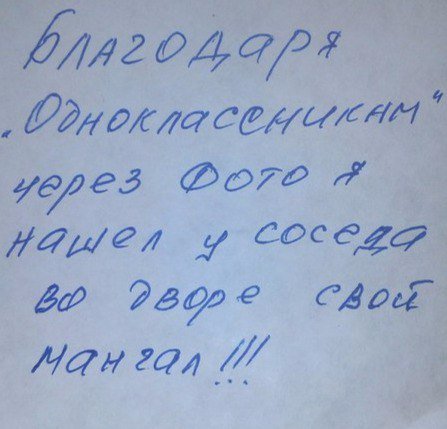 Благодаря
"Одноклассникам"
через фото я
нашел у соседа
во дворе свой
мангал!!!